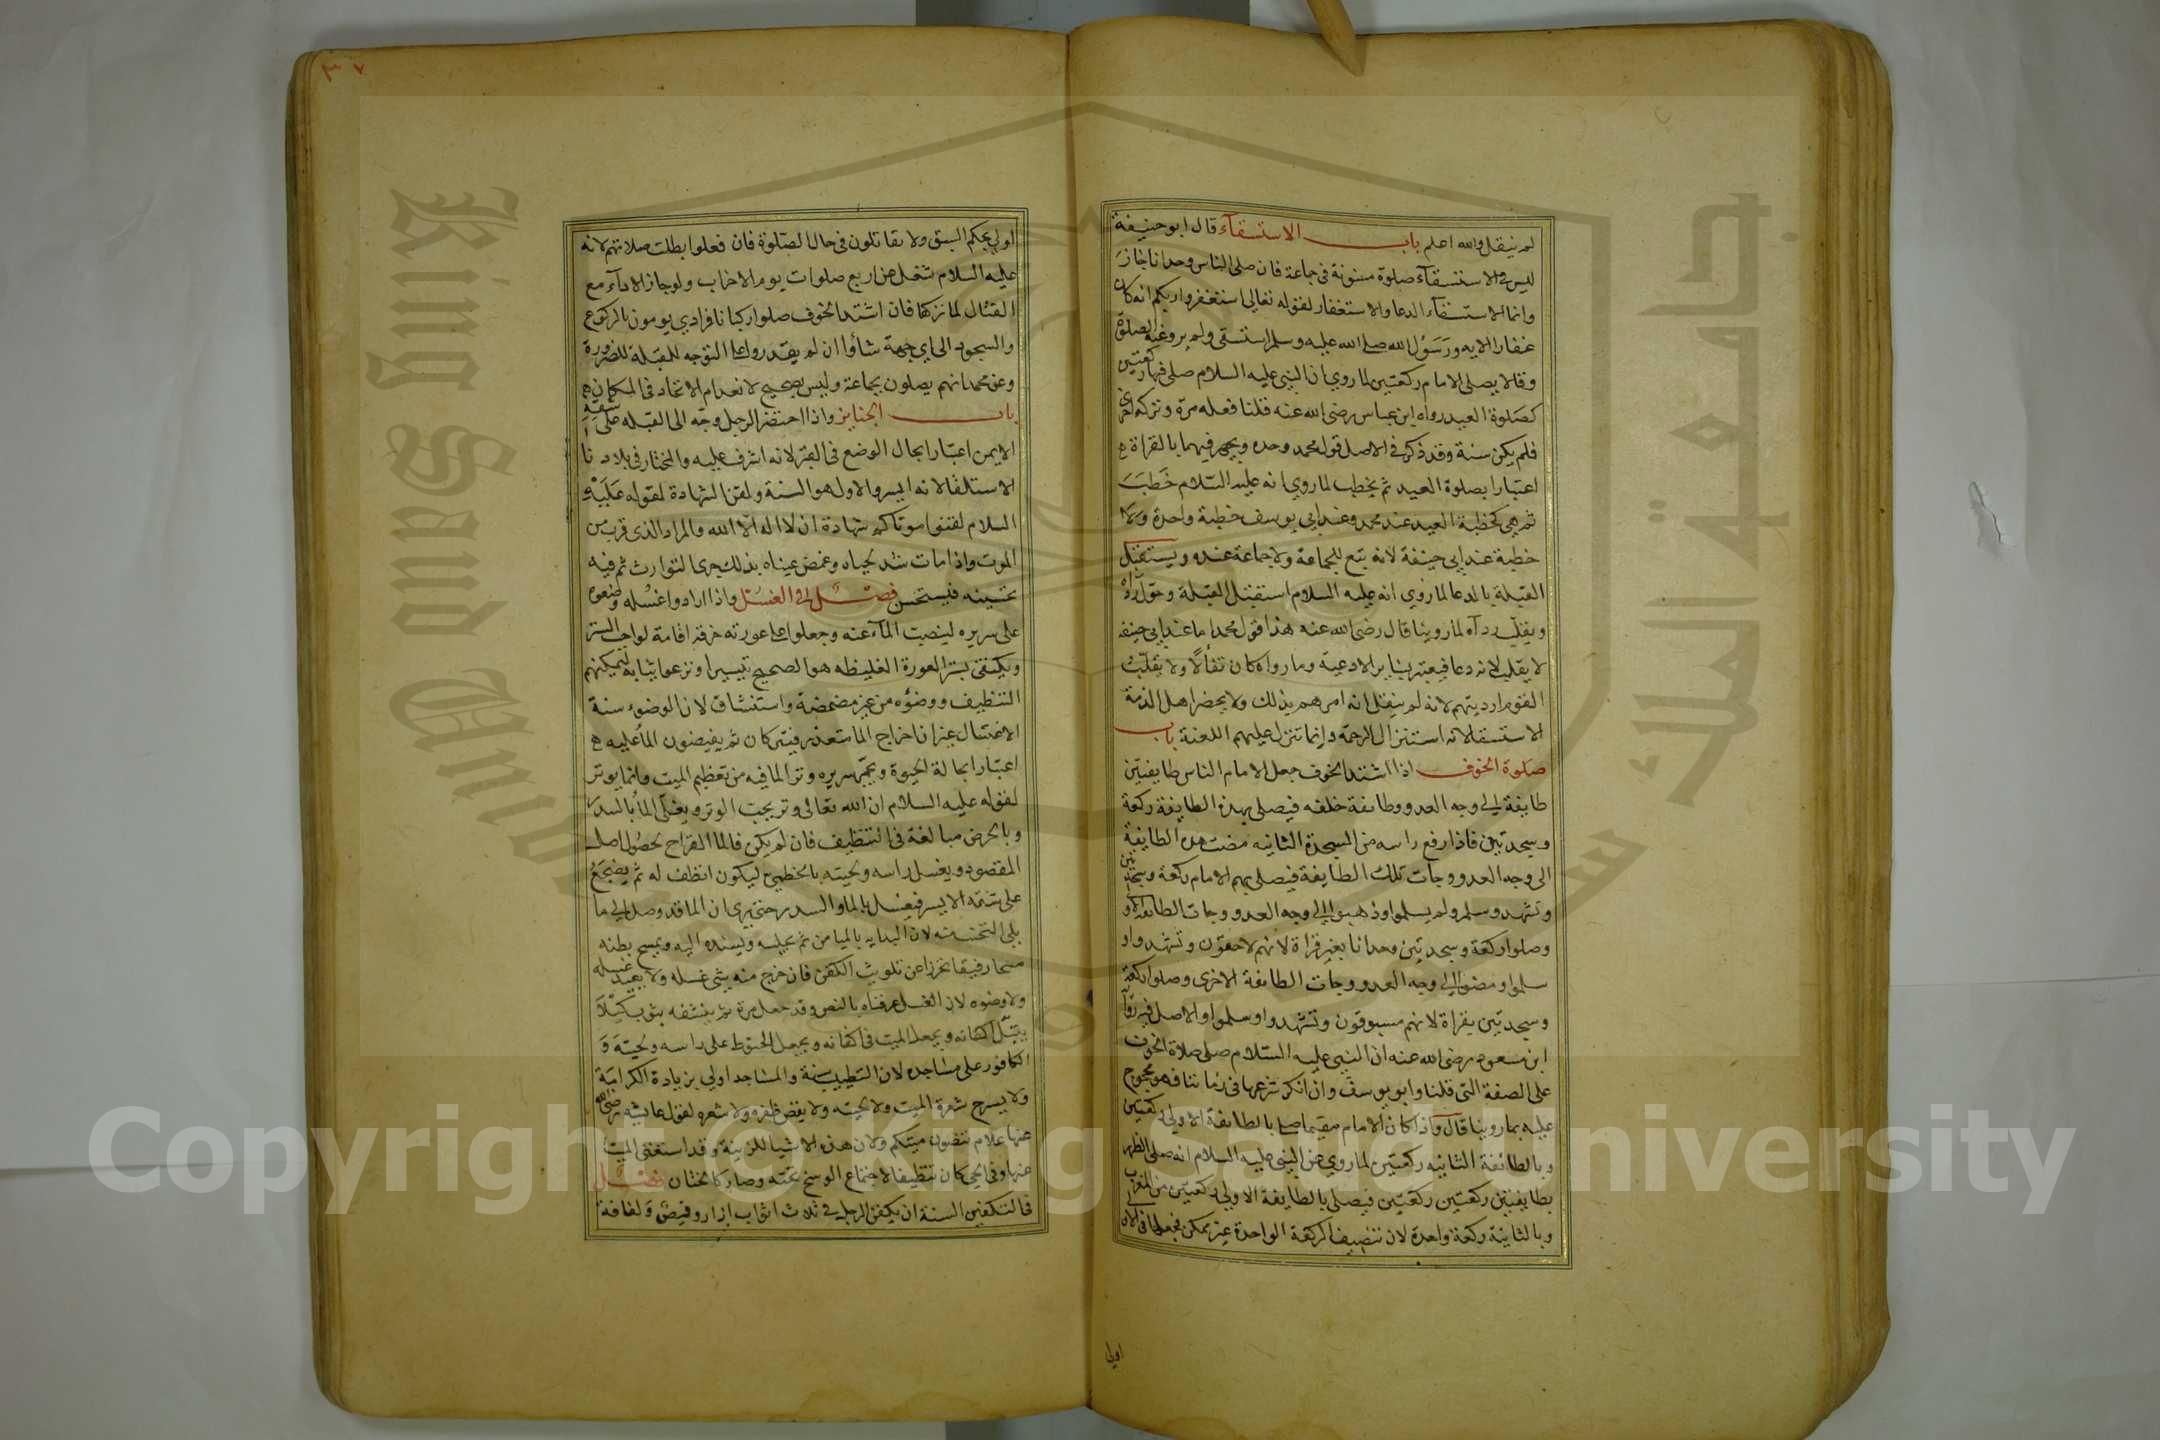 لم ينقل والله اعلم باب الاستسقآء قال ابو حنيفة
ليس في الاستسقآء صلوة مسنونة في جماعة فان صلى الناس وحدانا جاز
وانما الاستسقآء الدعا والاستغفار لقوله تعالى استغفروا ربكم انه كان
غفارا الايه ورسول الله صلى الله عليه وسلم استسقى ولم يرو عنه الصلوة
وقالا يصلى الامام ركعتين لما روي ان النبي عليه السلام صلى فيها ركعتين
كصلوة العيد رواه ابن عباس رضى الله عنه قلنا فعله مرة وتركه اخرى
فلم يكن سنة وقد ذكر في الاصل قول محمد وحده ويجهر فيهما بالقراة
اعتبارا بصلوة العيد ثم يخطب لما روي انه عليه السلام خطب
ثم هي كخطبة العيد عند محمد وعند ابي يوسف خطبة واحدة ولا
خطبة عند ابي حنيفة لانه تبع للجماعة ولا جماعة عنده ويستقبل
القبلة بالدعا لما روي انه عليه السلام استقبل القبلة وحول رداه
ويقلب ردآه لما روينا قال رضى الله عنه هذا قول محمد اما عند ابي حنيفة
لا يقلب لانه دعا فيعتبر بساير الادعية وما رواه كان تفألا ولا يقلب
القوم ارديتهم لانه لم ينقل انه امرهم بذلك ولا يحضر اهل الذمة
الاستسقا لانه استنزال الرحمة وانما تنزل عليهم اللعنة باب
صلوة الخوف اذا اشتد الخوف جعل الامام الناس طايفتين
طايفة الى وجه العدو وطايفة خلفه فيصلى بهذه الطايفة ركعة
وسجدتين فاذا رفع راسه من السجدة الثانيه مضت هذه الطايفة
الى وجه العدو وجآت تلك الطايفة فيصلى بهم الامام ركعة وسجدتين
وتشهد وسلم ولم يسلموا وذهبوا الى وجه العدو وجات الطائفة الاولى
وصلوا ركعة وسجدتين وحدانا بغير قراة لانهم لاحقون وتشهدوا و
سلموا ومضوا الى وجه العدو وجات الطائفة الاخرى وصلوا ركعة
وسجدتين بقراة لانهم مسبوقون وتشهدوا وسلموا والاصل فيه رواية
ابن مسعود رضى الله عنه ان النبي عليه السلام صلى صلاة الخوف
على الصفة التى قلنا وابو يوسف وان انكر شرعيتها في زماننا فهو محجوج
عليه بما روينا قال واذا كان الامام مقيما صلى بالطائفة الاولى ركعتين
وبالطائفة الثانيه ركعتين لما روي عن النبي عليه السلام انه صلى الظهر
بطايفتين ركعتين ركعتين فيصلى بالطايفة الاولى ركعتين من المغرب
وبالثانية ركعة واحدة لان تنصيف الركعة الواحدة غير ممكن فجعلها في الاولى
اولى
٣٧
اولى بحكم السبق ولا يقاتلون في حال الصلوة فان فعلوا بطلت صلاتهم لانه
عليه السلام شغل عن اربع صلوات يوم الاحزاب ولو جاز الادآء مع
القتال لما تركها فان اشتد الخوف صلوا ركبانا فرادي يومون بالركوع
والسجود الى اي جهة شاؤا ان لم يقدروا على التوجه للقبلة للضرورة
وعن محمد انهم يصلون بجماعة وليس بصحيح لانعدام الاتحاد في المكان
باب الجنايز واذا احتضر الرجل وجه الى القبله على شقه
الايمن اعتبارا بحال الوضع في القبر لانه اشرف عليه والمختار في بلادنا
الاستلقا لانه ايسر والاول هو السنة ولقن الشهادة لقوله عليه
السلام لقنوا موتاكم شهادة ان لا اله الا الله والمراد الذى قرب من
الموت واذا مات شد لحياه وغمض عيناه بذلك جرى التوارث ثم فيه
تحسينه فيستحسن فصل في الغسل واذا ارادوا غسله وضعوه
على سريره لينصب المآء عنه وجعلوا على عورته خرقة اقامة لواجب الستر
ويكتفى بستر العورة الغليظه هو الصحيح تيسيرا ونزعوا ثيابه ليمكنهم
التنظيف ووضوه من غير مضمضة واستنشاق لان الوضوء سنة
الاغتسال غير ان اخراج الما متعذر فيتركان ثم يفيضون الما عليه
اعتبارا بحالة الحيوة ويجمر سريره وترا لما فيه من تعظيم الميت وانما يوتر
لقوله عليه السلام ان الله تعالى وتر يحب الوتر ويغلى الما بالسدر
وبالحرض مبالغة في التنظيف فان لم يكن فالما القراح لحصول اصل
المقصود ويغسل راسه ولحيته بالخطمى ليكون انظف له ثم يضجع
على شقه الايسر فيغسل بالما والسدر حتى يرى ان الما قد وصل الى ما
يلى التخت منه لان البدايه بالميامن ثم يجلسه ويسنده اليه ويمسح بطنه
مسحا رفيقا تحرزا عن تلويث الكفن فان خرج منه شى غسله ولا يعيد غسله
ولا وضوه لان الغسل عرفناه بالنص وقد حصل مرة ثم ينشفه بثوب كيلا
يبتل اكفانه ويجعل الميت في اكفانه ويجعل الحنوط على راسه ولحيته و
الكافور على مساجده لان التطييب سنة والمساجد اولى بزيادة الكرامة
ولا يسرح شعر الميت ولا لحيته ولا يقص ظفره ولا شعره لقول عايشه رضى الله
عنها علام تنصون ميتكم ولان هذه الاشيا للزينة وقد استغنى الميت
عنها وفي الحى كان تنظيفا لاجتماع الوسخ تحته وصار كالختان فصل
في التكفين السنة ان يكفن الرجل في ثلاث اثواب ازار وقميص ولفافة
King Saud University
جامعة الملك سعود
Copyright © King Saud University